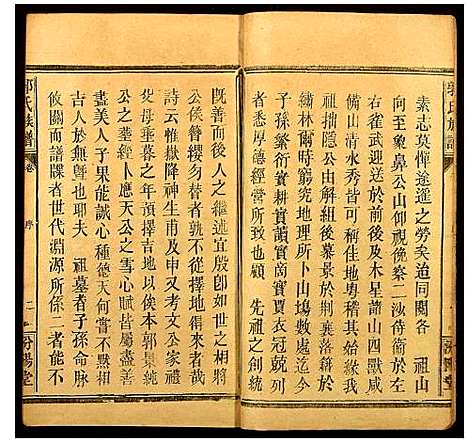 素志莫憚遠進之勞矣迨同闔各　祖山
向至象鼻公山仰視俛察二沙侍衛於左
右雀武迎送於前後及木星蕭山四獸咸
備山清水秀皆可稱也然粵稽其始緣我
祖拙隱公由解組後慕景於荊襄落籍於
繡林爾時窮究地理所卜山塲數處竝列
子孫繁衍實耕實讀實商實賈衣冠競
者悉厚德經營所致也又　先祖之創統
既善而後人之繼述宜殷卽如世之相將
公侯簪纓勿替者孰不從擇地得來者哉
詩云惟嶽降神生甫及申又考文公家禮
父母垂暮之年預擇吉地以俟本郭杲純
公之葬經卜應天公之雪心賦皆屬盡善
盡美人子果能誠心種德天何嘗不黙相
吉人於無旣也哉　祖墓者子孫命脉
攸關而譜牒者世代淵源所係二者能不
郭氏族譜
卷
序
二
汾陽堂